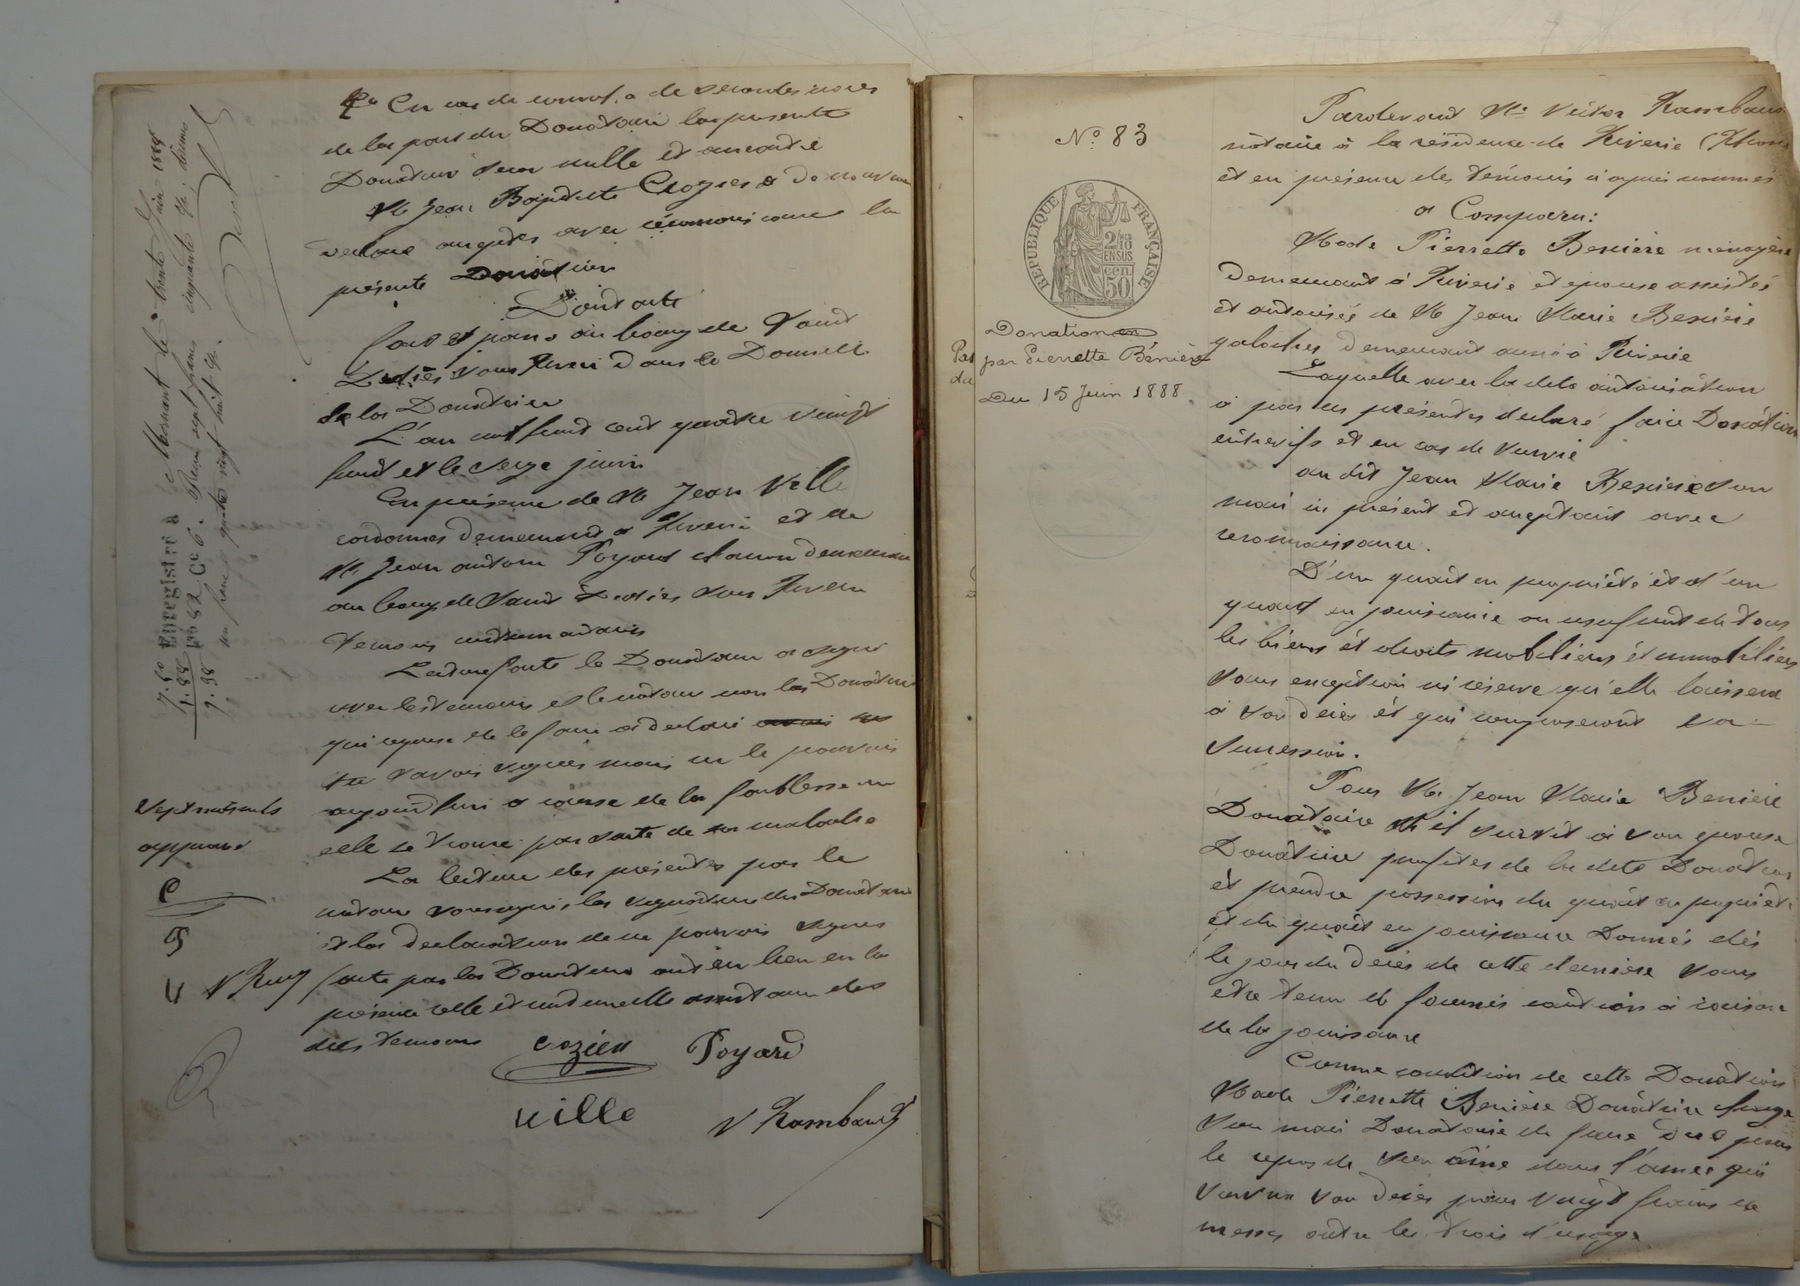 4° En cas de convol à de secondes noces
de la part du Donataire la présente
Donation sera nulle et
M. Jean Baptiste Cozier a de nouveau
déclaré accepter avec reconnaissance la
présente Donation
Dont acte
fait et passé au bourg de Saint
Didier sous Riverie dans le Domicile
de la Donatrice
L'an mil huit cent quatre vingt
huit et le seize juin
En présence de M. Jean Ville
cordonnier demeurant à Riverie et de
M. Jean antoine Poyard demeurant
au bourg de Saint Didier sous Riverie
témoins instrumentaires
Lecture faite le Donataire a signé
avec les témoins et le notaire non la Donatrice
qui requise de le faire a déclaré
savoir signer mais ne le pouvoir
aujourd'hui à cause de la faiblesse où
elle se trouve par suite de sa maladie
La lecture des présentes par le
notaire soussigné, les signatures du Donataire
et la déclaration de ne pouvoir signer
faite par la Donatrice ont eu lieu en la
présence réelle et individuelle des
dits témoins
Cozier Poyard
Ville
V Rambaud
Sept mots nuls
approuvé
C
P
V V Ram
R
Enregistré à Mornant le trente Juin 1888
f° 82 C° 6. Reçu sept francs cinquante c. décimes
un franc quatre vingt huit c.
7.50
1.88
9.38
N° 83
RÉPUBLIQUE FRANÇAISE
2/10 EN SUS
50 cen
Donation
par Pierrette Bénière
Du 15 Juin 1888
Pardevant Me Victor Rambaud
notaire à la résidence de Riverie (Rhône)
et en présence des témoins ci après nommés
a Comparu:
Made Pierrette Benière ménagère
demeurant à Riverie et épouse assistée
et autorisée de M. Jean Marie Benière
galocher, demeurant aussi à Riverie
Laquelle avec la dite autorisation
a par ces présentes déclaré faire Donation
entrevifs et en cas de survie
au dit Jean Marie Benière son
mari ici présent et acceptant avec
reconnaissance.
D'un quart en propriété et d'un
quart en jouissance ou usufruit de tous
les biens et droits mobiliers et immobiliers
sans exception ni réserve qu'elle laissera
à son décès et qui composeront sa
succession.
Pour M. Jean Marie Benière
Donataire s'il survit à son épouse
Donatrice profiter de la dite Donation
et prendre possession du quart en propriété
et du quart en jouissance Donnés dès
le jour du décès de cette dernière sans
être tenu de fournir caution à raison
de la jouissance
Comme condition de cette Donation
Made Pierrette Benière Donatrice charge
son mari Donataire de faire dire pour
le repos de son âme dans l'année qui
suivra son décès pour vingt francs de
messes outre les frais d'usage.